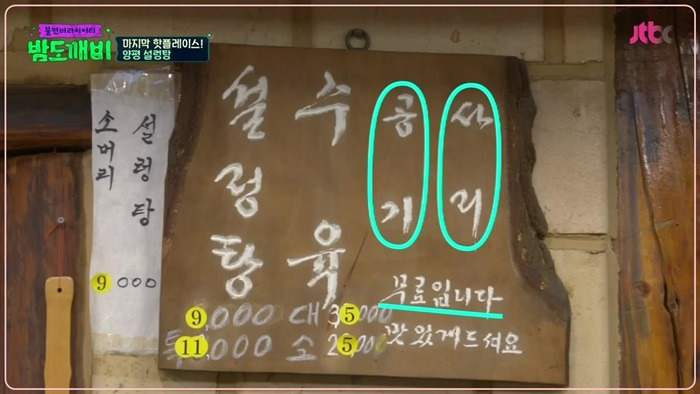 불면버라이어티
밤도깨비
마지막 핫플레이스!
양평 설렁탕
jtbc
소머리
설렁탕
9000
설렁탕
수육
공기
사리
무료입니다
맛있게드셔요
9,000
특 11,000
대 35,000
소 25,000